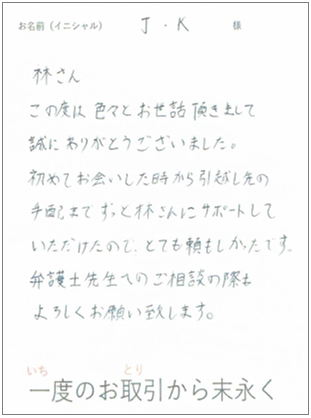 お名前（イニシャル） J・K 様
林さん
この度は色々とお世話頂きまして
誠にありがとうございました。
初めてお会いした時から引越し先の
手配までずっと林さんにサポートして
いただけたので、とても頼もしかったです。
弁護士先生へのご相談の際も
よろしくお願い致します。
いち とり
一度のお取引から末永く